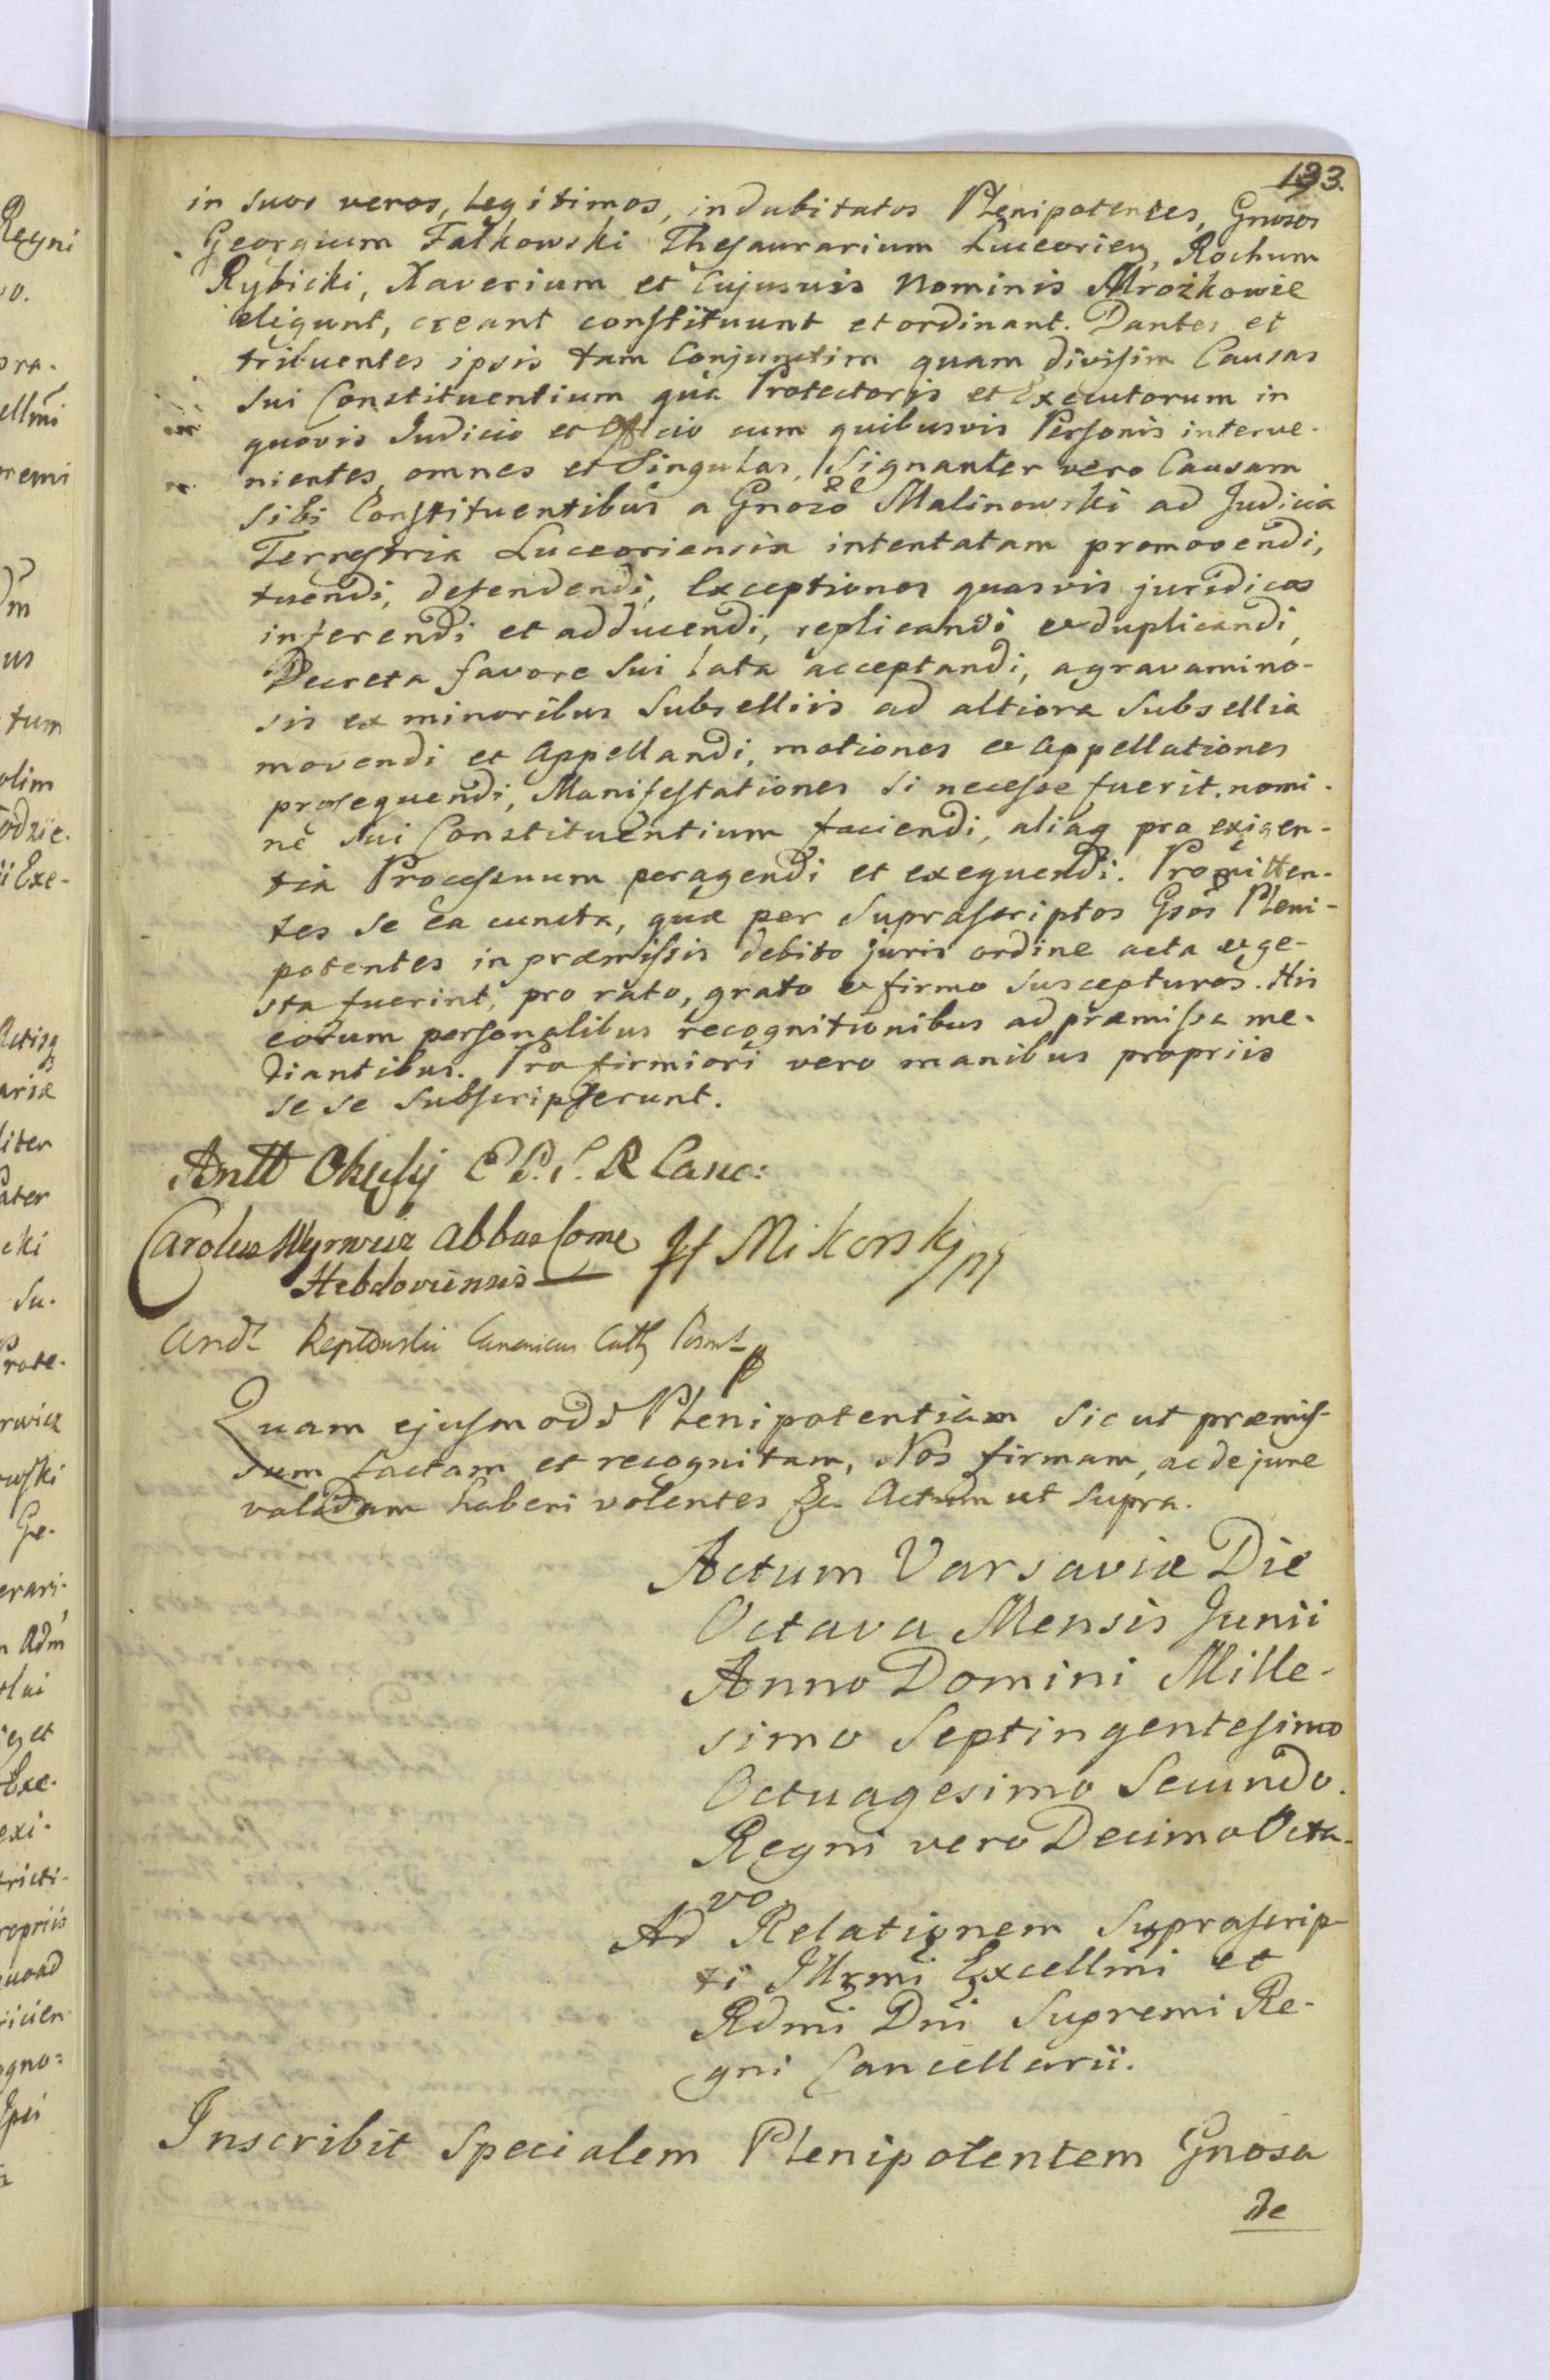 133.
in suos veros, legitimos, indubitatos Plenipotentes, Gnosos
Georgium Fałkowski Thesaurarium Luceorien, Rochum
Rybicki, Xaverium et Cujusuis Nominis Mrozkowie
eligunt, creant constituunt et ordinant. Dantes et
tribuentes ipsis tam Conjunctim quam divisim Causas
sui Constituentium quâ Protectoris et Executorum in
quovis Judicio et Officio cum quibusvis Personis interve-
nientes, omnes et Singulas, Signanter vero Causam
sibi Constituentibus a Gnoso Malinowski ad Judicia
Terrestria Luceoriensia intentatam promovendi,
tuendi, defendendi, Exceptiones quasvis juridicas
inferendi et adducendi, replicandi et duplicandi,
Decreta favore sui lata acceptandi, agravamino-
sis ex minoribus Subselliis ad altiora Subsellia
movendi et Appellandi, motiones et Appellationes
prosequendi, Manifestationes si necesse fuerit, nomi-
ne sui Constituentium faciendi, aliaq pro exigen-
tia Processuum peragendi et exequendi. Promitten-
tes se ea cuncta, quæ per Suprascriptos Gsos Pleni-
potentes in præmissis debito juris ordine acta et ge-
sta fuerint, pro rato, grato et firmo suscepturos. His
eorum personalibus recognitionibus ad præmissa me-
diantibus. Pro firmiori vero manibus propriis
se se subscripserunt.
Antt Okęcki E P. S. R Canc:
Carolus Wyrwicz Abbas Come
Hebdoviensis
Mikorski
And: Reptowski Canonicus Cath
Quam ejusmodi Plenipotentiam sicut præmis-
sum factam et recognitam, Nos firmam, ac de jure
validam haberi volentes &c. Actum ut supra.
Actum Varsaviæ Die
Octava Mensis Junii
Anno Domini Mille-
simo Septingentesimo
Octuagesimo Secundo.
Regni vero Decimo Octa-
vo
Ad Relationem Suprascrip-
ti Illrmi Excellmi et
Rdmi Dni Supremi Re-
gni Cancellarii.
Inscribit Specialem Plenipotentem Gnosa
de